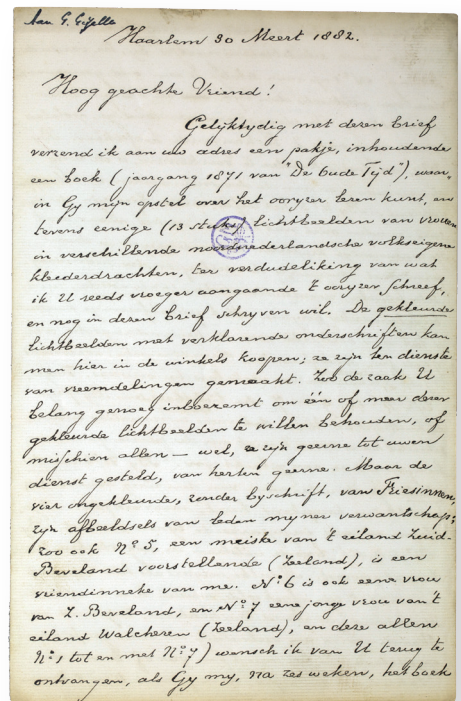 Aan G. Gezelle
Haarlem 30 Meert 1882.
Hoog geachte Vriend!
Gelyktydig met dezen brief
verzend ik aan uw adres een pakje, inhoudende
een boek (jaargang 1871 van "De Oude Tijd"), waar-
in Gy myn opstel over het ooryzer lezen kunt, en
tevens eenige (13 stuks) lichtbeelden van vrouen
in verschillende noordnederlandsche volkseigene
kleederdrachten, ter verdudeliking van wat
ik U reeds vroeger aangaande 't ooryzer schreef,
en nog in dezen brief schryven wil. De gekleurde
lichtbeelden met verklarende onderschriften kan
men hier in de winkels koopen; ze zyn ten dienste
van vreemdelingen gemaakt. Zoo de zaak U
belang genoeg inboezemt om één of meer dezer
gekleurde lichtbeelden te willen behouden, of
misschien allen — wel, ze zyn geerne tot uwen
dienst gesteld, van herten geerne. Maar de
vier ongekleurde, zonder byschrift, van Friesinnen,
zyn afbeeldsels van leden myner verwantschap;
zoo ook No 5, een meiske van 't eiland Zuid-
Beveland voorstellende (Zeeland), is een
vriendinneke van me. No 6 is ook eene vrou
van Z. Beveland, en No 7 eene jonge vrou van 't
eiland Walcheren (Zeeland), en deze allen
No 1 tot en met No 7) wensch ik van U terug te
ontvangen, als Gy my, na zes weken, het boek